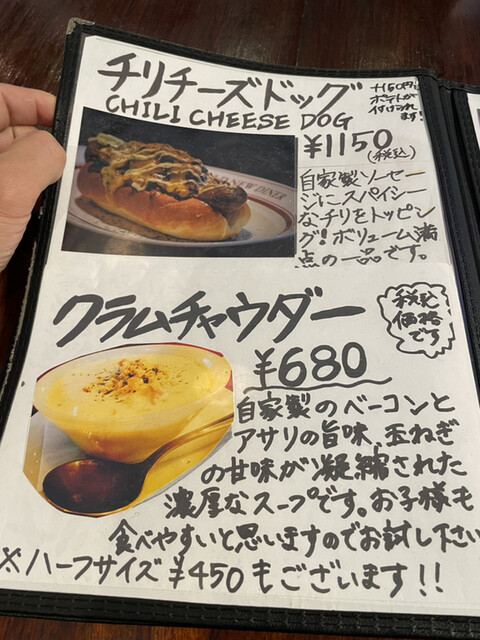 チリチーズドッグ
CHILI CHEESE DOG
+150円で
ポテトが
付けられ
ます!
¥1150
(税込)
自家製ソーセー
ジにスパイシー
なチリをトッピン
グ!ボリューム満
点の一品です。
NEW DINER
クラムチャウダー
税込
価格
です
¥680
自家製のベーコンと
アサリの旨味、玉ねぎ
の甘味が凝縮された
濃厚なスープです。お子様も
食べやすいと思いますのでお試し下さい
※ハーフサイズ¥450もございます!!